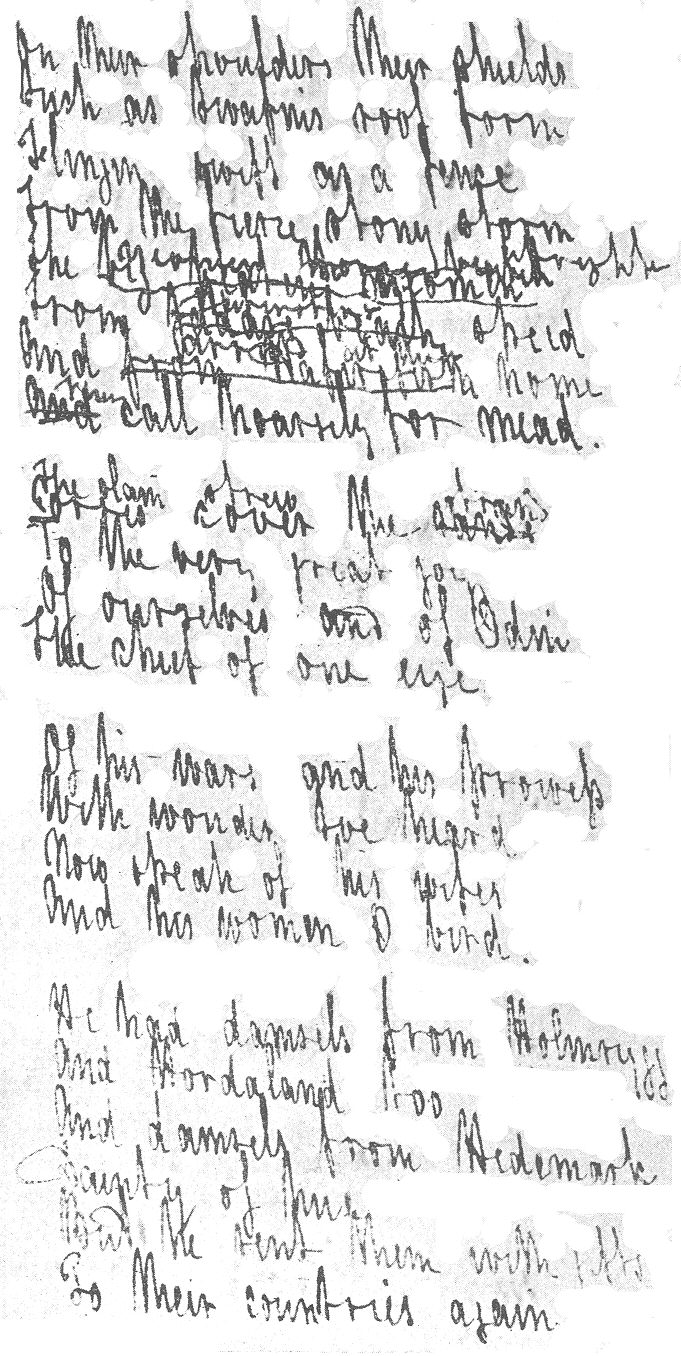 On their shoulders their shields
Such as Swafnis roof form
Flingin swift as a fence
From the fierce stony storm
the
from speed
And home
then call hoarsely for mead.
The slain strew the strand
Corses cover the
To the very great joy
Of ourselves and of Odin
The chief of one eye
Of his wars and his prowess
With wonder I've heard
Now speak of his wifes
And his women O bird.
He had damsels from Holmrygg
And Hordaland too
And damsels from Hedemark
of hue
But he sent them with gifts
To their countries again